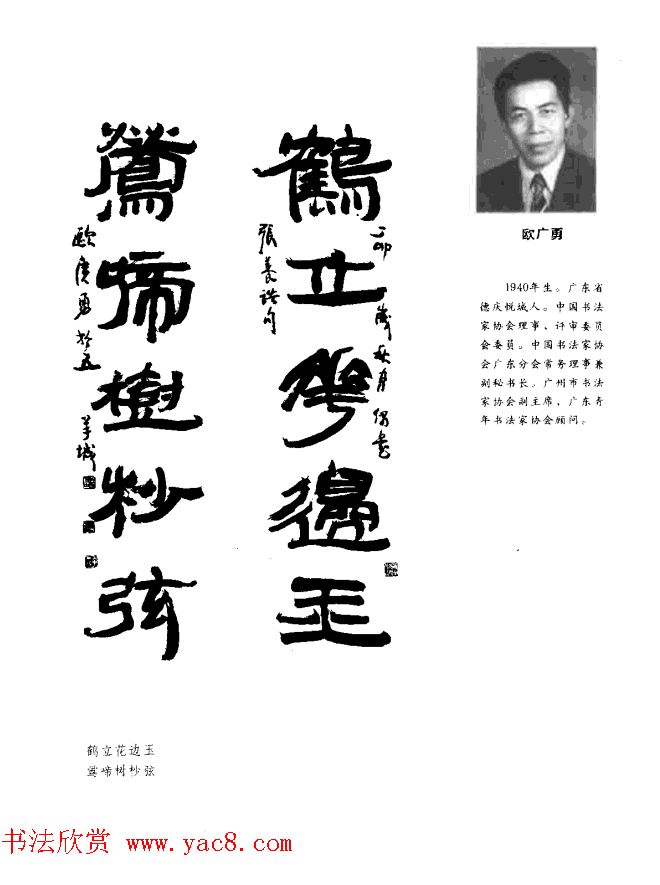 鶴立華邊玉
丁卯歲秋月偶書
張養浩句
鶯啼樹杪弦
歐廣勇於五羊城
欧广勇
1940年生。广东省
德庆悦城人。中国书法
家协会理事、评审委员
会委员。中国书法家协
会广东分会常务理事兼
副秘书长。广州市书法
家协会副主席、广东青
年书法家协会顾问。
鹤立花边玉
莺啼树杪弦
书法欣赏 www.yac8.com